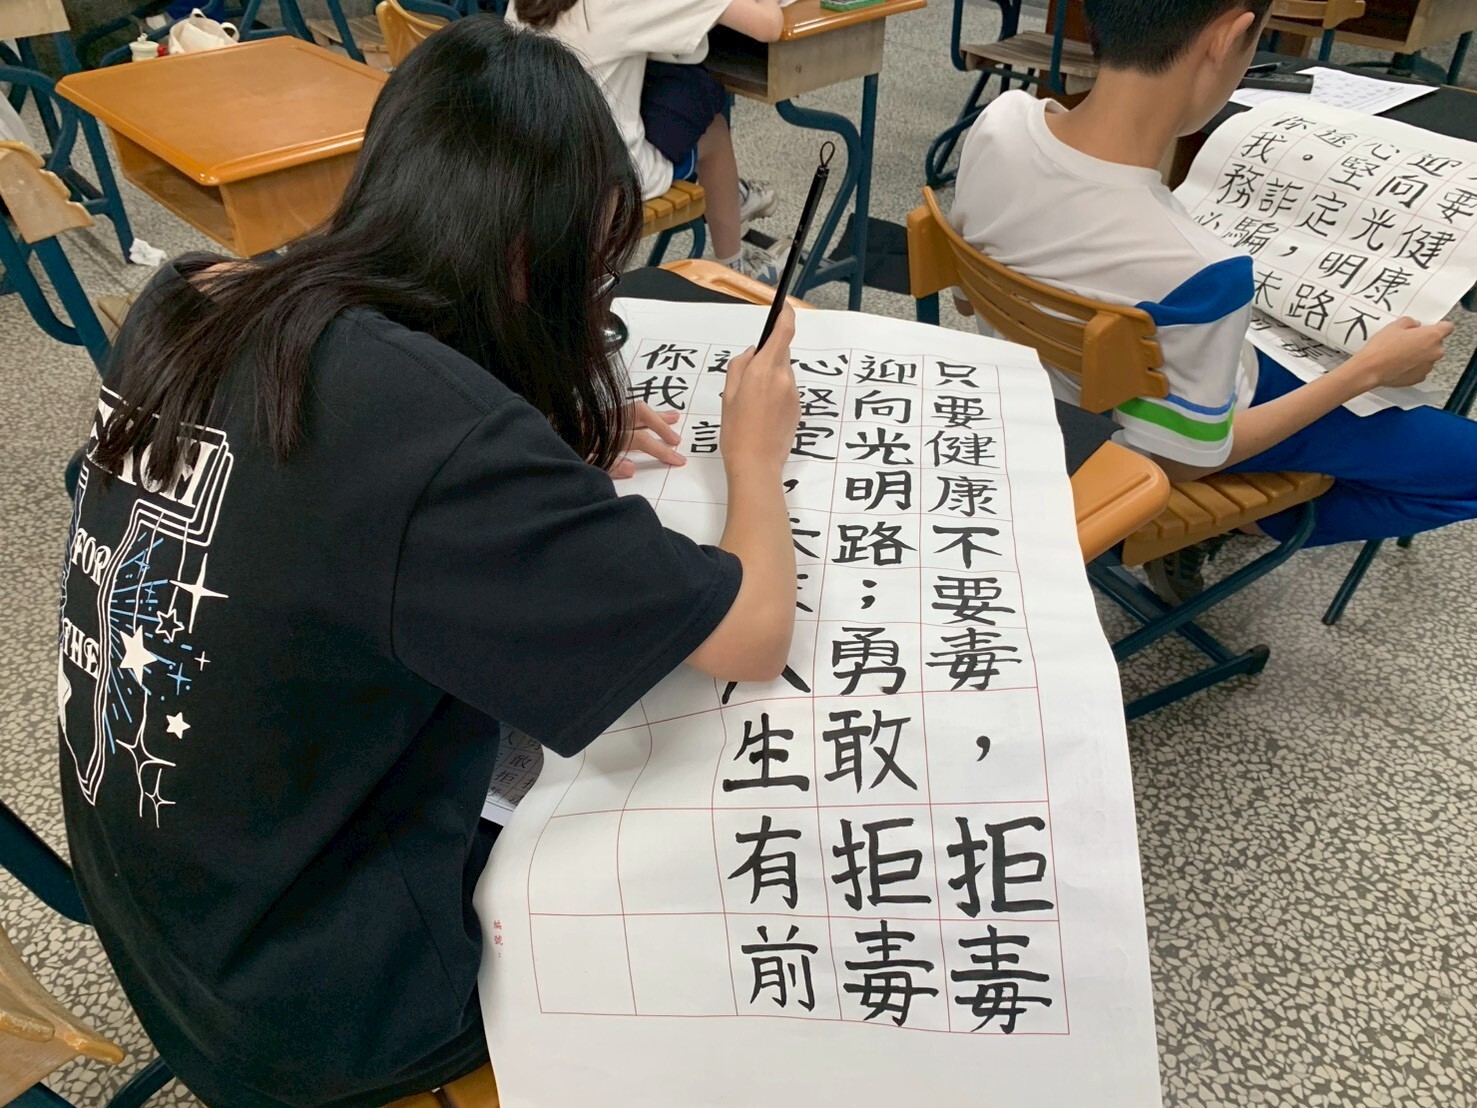 只要健康不要毒，拒毒
迎向光明路；勇敢拒毒
心堅定，人生有前
你我
編號：
要健康不
迎向光明路
心堅定，未
途。詐騙
你我務必
FOR
THE